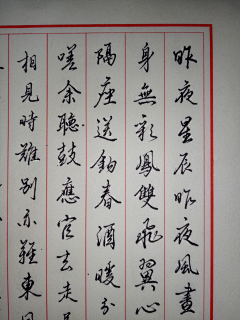 昨夜星辰昨夜風畫
身無彩鳳雙飛翼心
隔座送鉤春酒暖分
嗟余聽鼓應官去走
相見時難別亦難東風